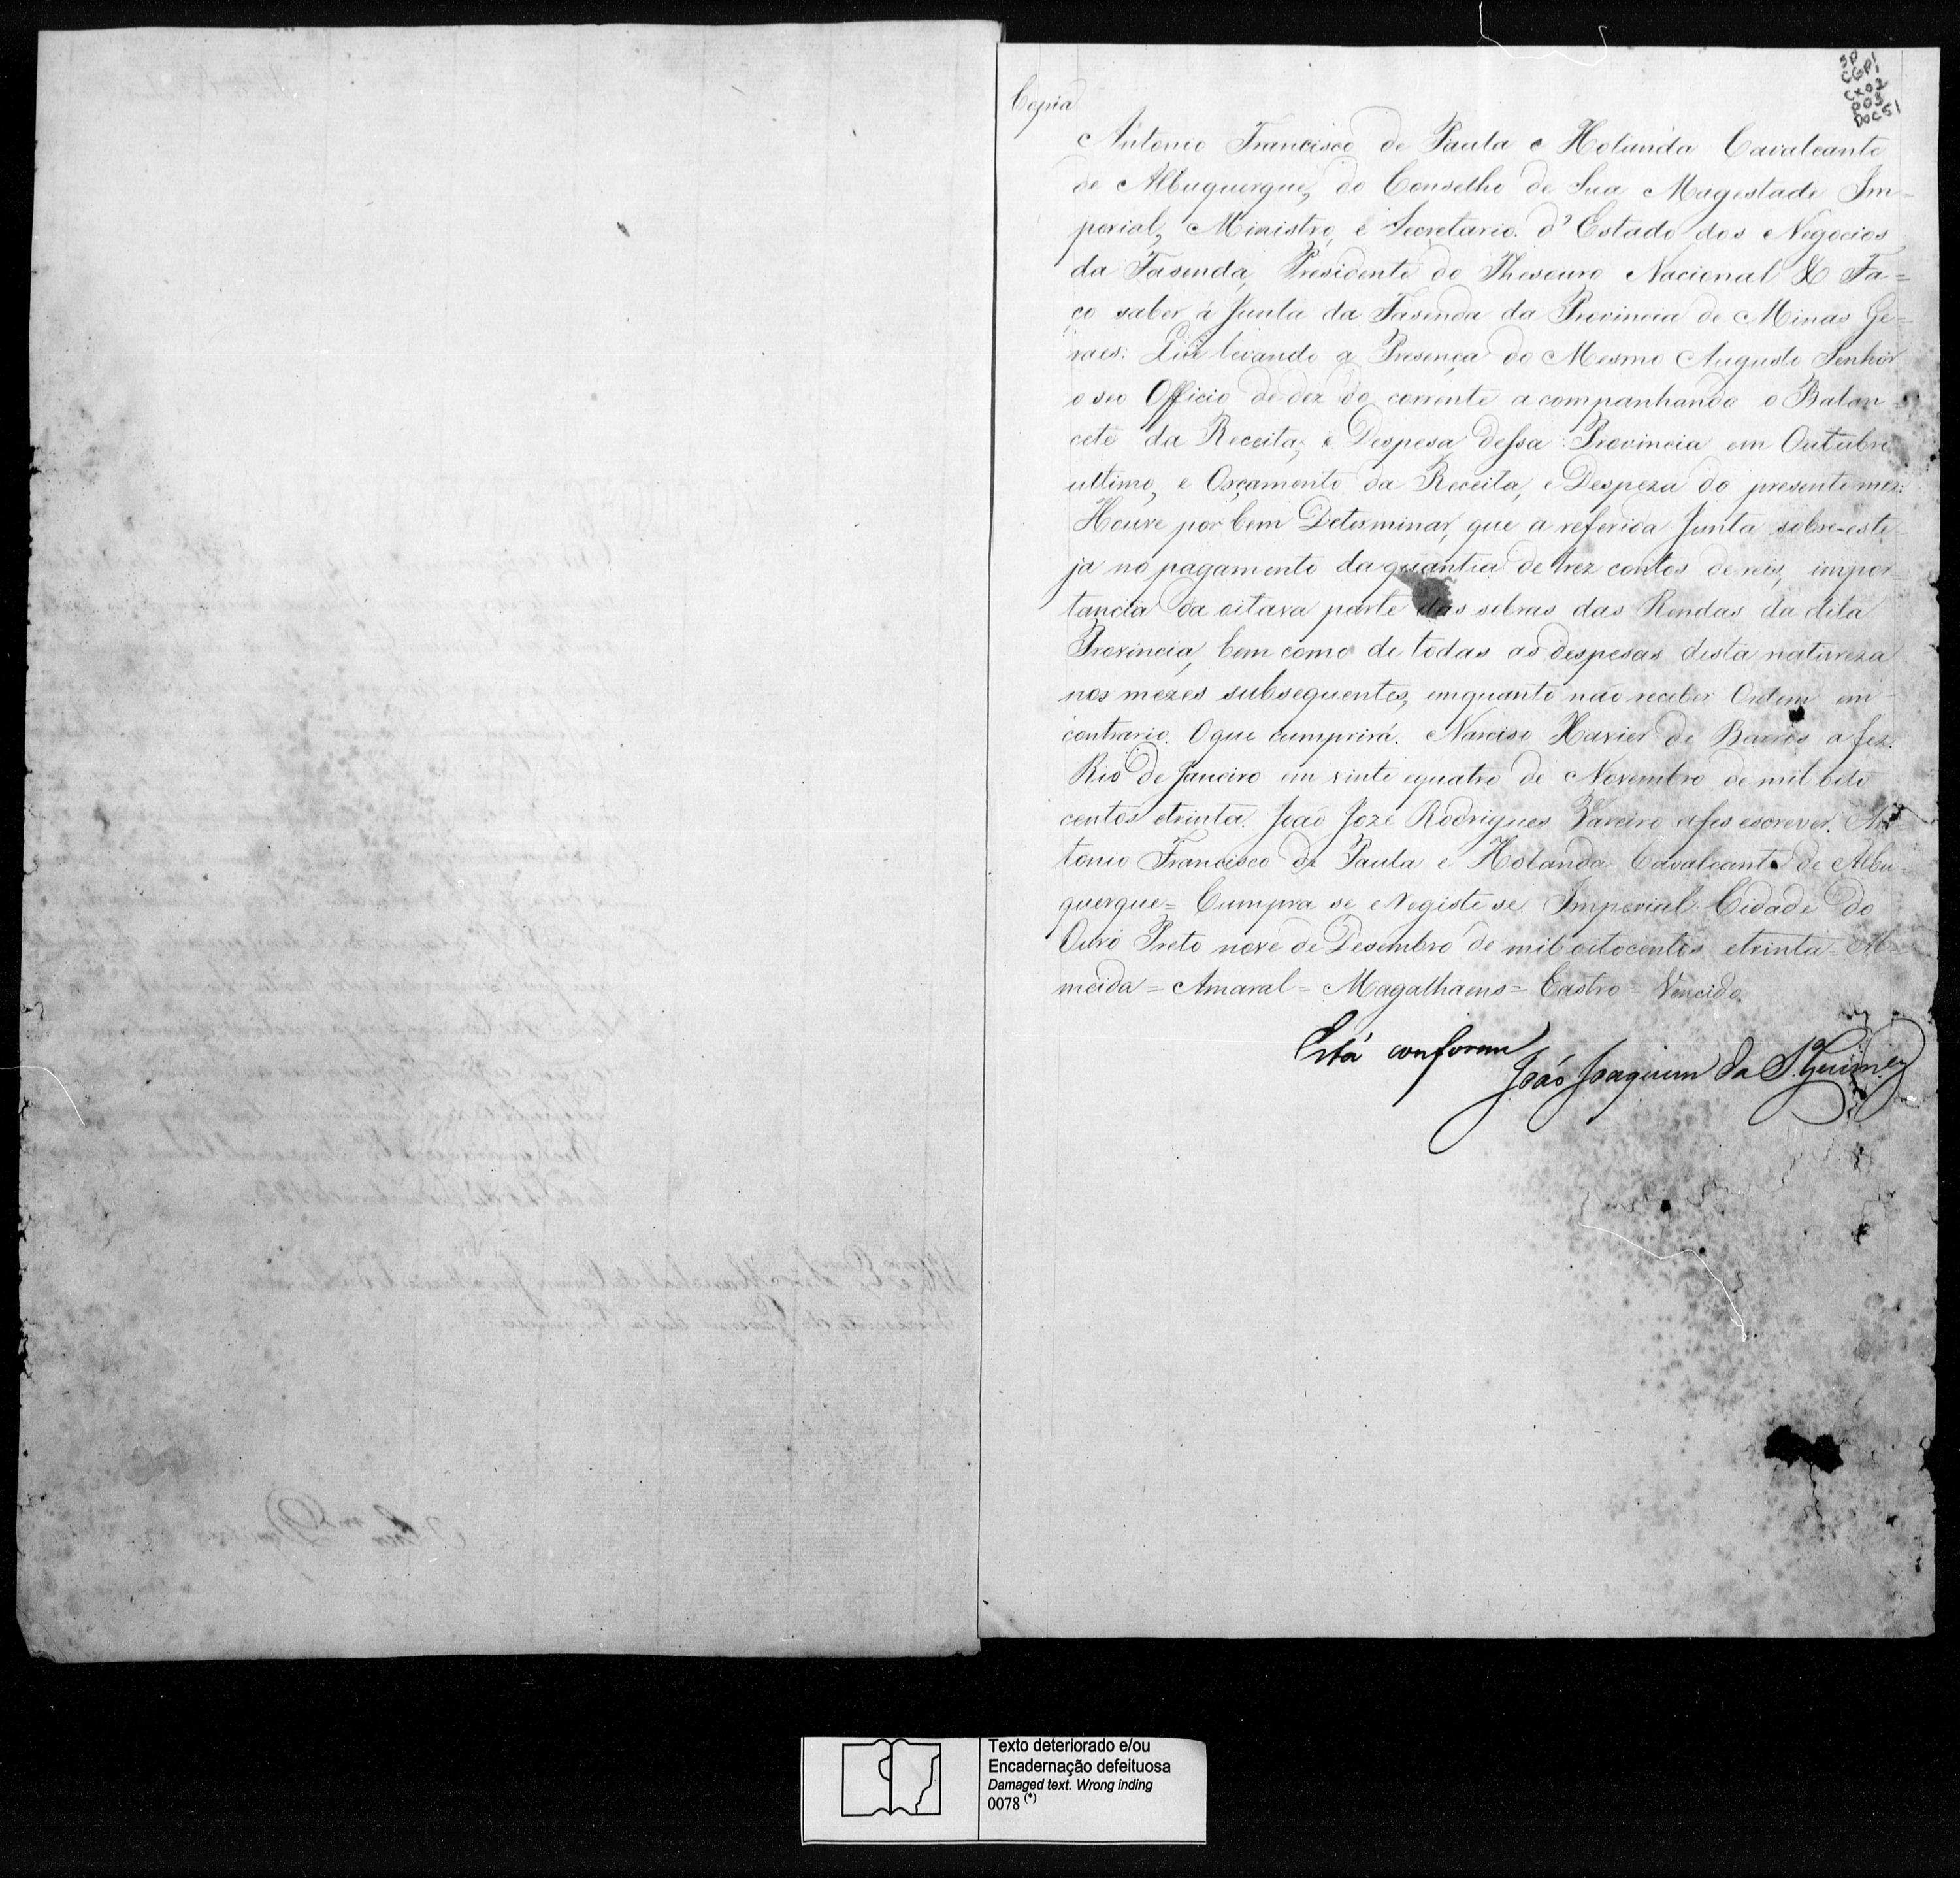 SP
CGP1
CX02
P03
DOC51
Copia
Antonio Francisco de Paula e Holanda Cavalcante
de Albuquerque, do Conselho de Sua Magestade Im=
perial, Ministro, e Secretario d'Estado dos Negocios
da Fasenda, Presidente do Thesouro Nacional & Fa=
ço saber á Junta da Fasenda da Provincia de Minas Ge=
raes: Que levando a Presença do Mesmo Augusto Senhor
o seo Officio de dez do corrente acompanhando o Balan=
cete da Receita, e Despesa dessa Provincia em Outubro
ultimo, e Orçamento da Receita, e Despeza do presente mez:
Houve por bem Determinar, que a referida Junta sobre-este=
ja no pagamento da quantia de trez contos de reis, impor=
tancia da oitava parte das sobras das Rendas da dita
Provincia, bem como de todas as despesas desta natureza
nos mezes subsequentes, emquanto não receber Ordem em
contrario. O que cumprirá. Narciso Xavier de Barros a fez.
Rio de Janeiro em vinte equatro de Novembro de mil oito
centos etrinta. João Jozé Rodrigues Vareiro afes escrever. An=
tonio Francisco de Paula e Holanda Cavalcante de Albu=
querque= Cumpra se eRegiste se. Imperial Cidade do
Ouro Preto nove de Desembro de mil oitocentos etrinta= Al=
meida= Amaral= Magalhaens= Castro= Vencido.
Está conforme
João Joaquim da S.ª Guim.es
Texto deteriorado e/ou
Encadernação defeituosa
Damaged text. Wrong inding
0078 (*)